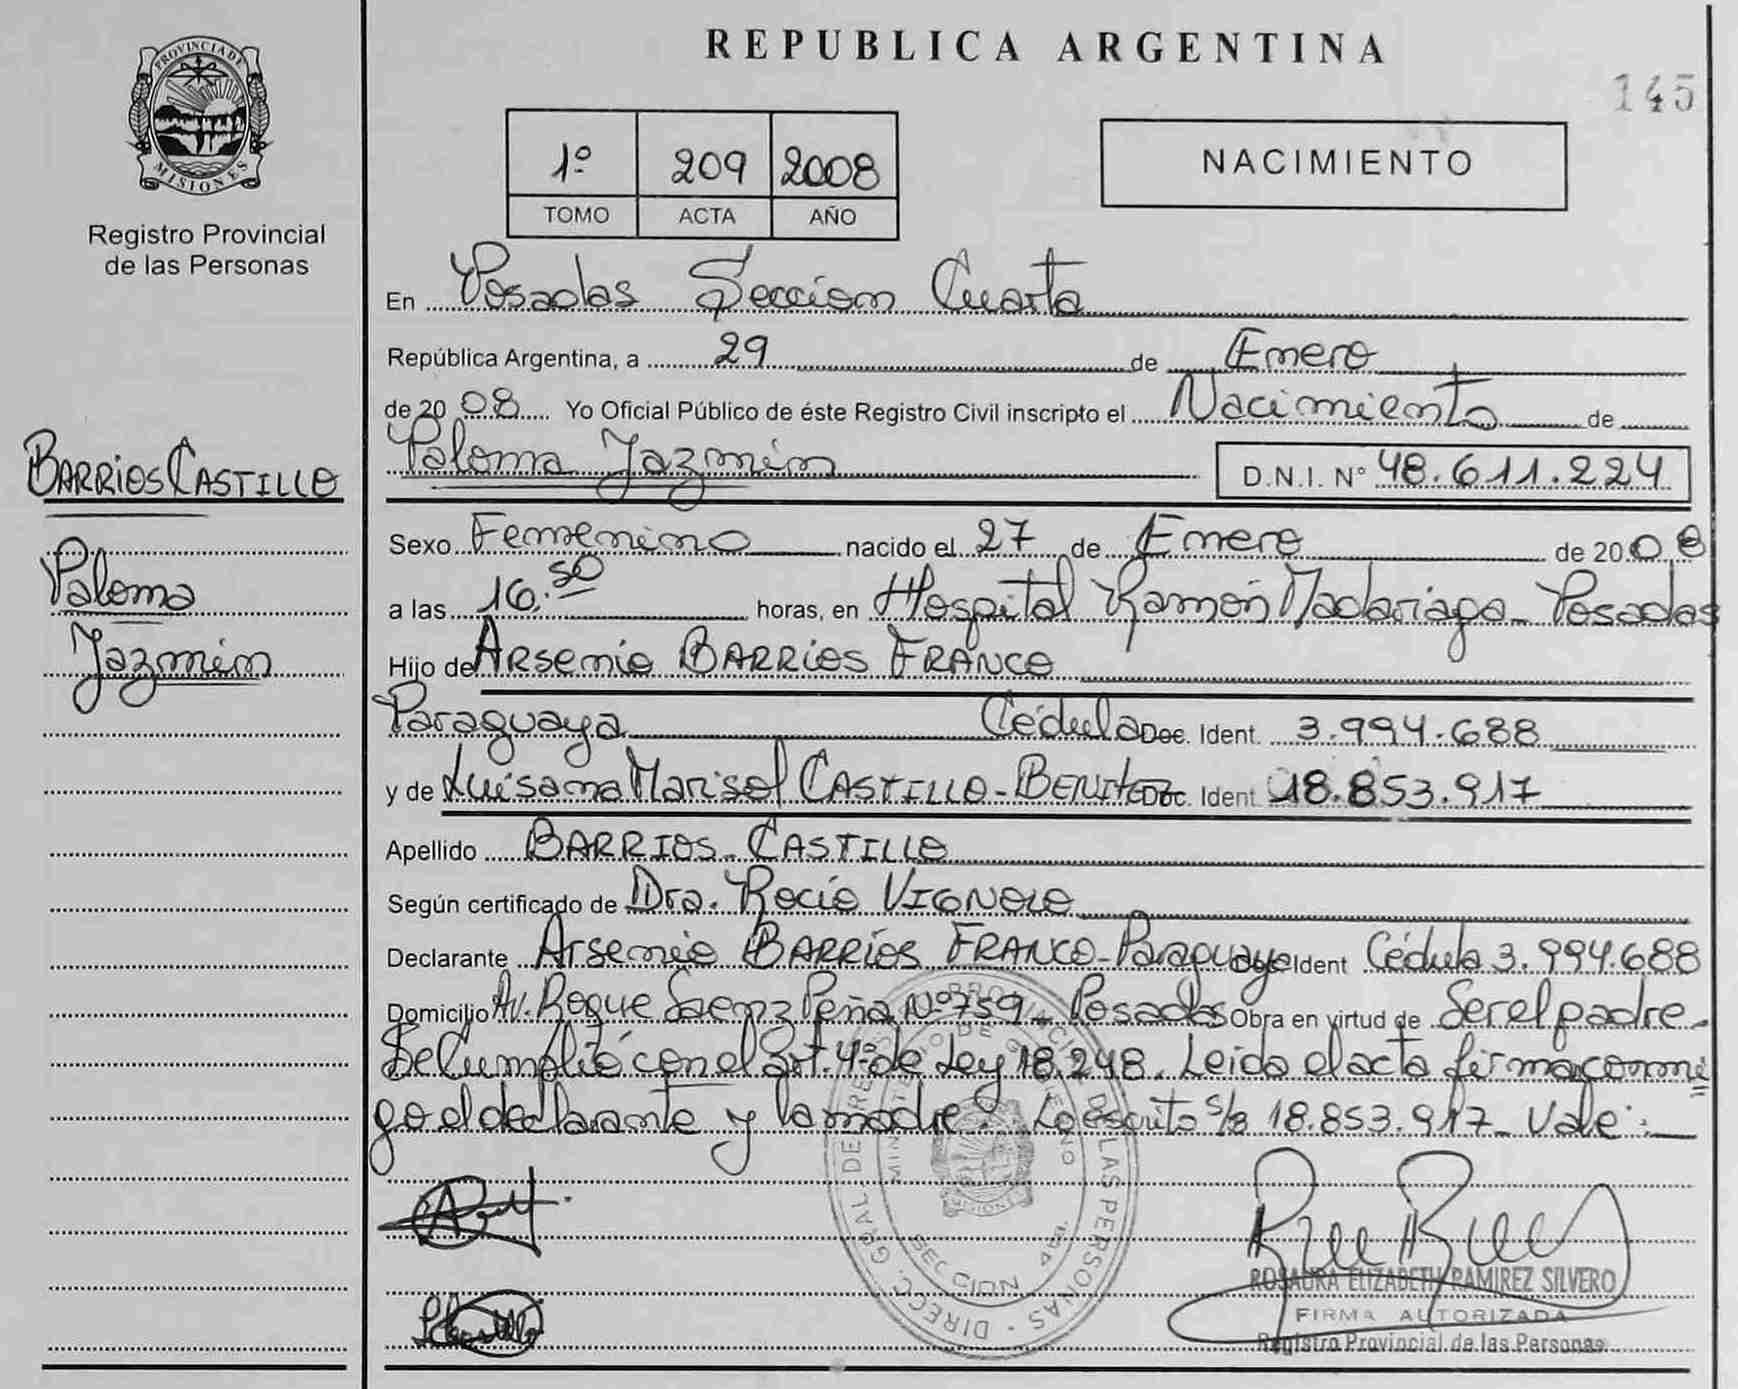 PROVINCIA DE
MISIONES
Registro Provincial
de las Personas
BARRIOS CASTILLO
Paloma
Jazmín
REPUBLICA ARGENTINA
145
1º 209 2008
TOMO ACTA AÑO
NACIMIENTO
En Posadas Sección Cuarta
República Argentina, a 29 de Enero
de 20 08 Yo Oficial Público de éste Registro Civil inscripto el Nacimiento de
Paloma Jazmín D.N.I. Nº 48.611.224
Sexo Femenino nacido el 27 de Enero de 20 08
a las 16:50 horas, en Hospital Ramón Madariaga - Posadas
Hijo de Arsenio BARRIOS FRANCO
Paraguaya Cédula Doc. Ident. 3.994.688
y de Luisana Marisol CASTILLO-BENITEZ Doc. Ident 18.853.917
Apellido BARRIOS-CASTILLO
Según certificado de Dra. Rocío VIGNOLO
Declarante Arsenio BARRIOS FRANCO-Paraguayo Ident Cédula 3.994.688
Domicilio Av. Roque Saenz Peña Nº 759 - Posadas Obra en virtud de Ser el padre.
Se Cumplió con el Art. 4º de Ley 18.248. Leída el acta firma conmi=
go el declarante y la madre. Lo escrito s/b 18.853.917 Vale:
DIRECC. GRAL. DE REGISTRO PROVINCIAL DE LAS PERSONAS
MINISTERIO DE GOBIERNO
SECCION 4ta.
ROSAURA ELIZABETH RAMIREZ SILVERO
FIRMA AUTORIZADA
Registro Provincial de las Personas